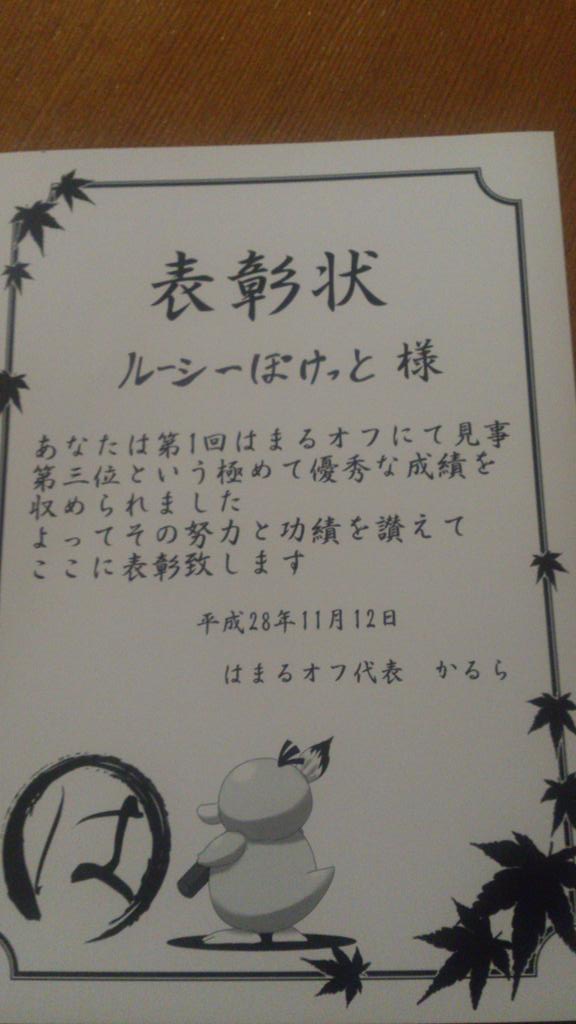 表彰状
ルーシーぽけっと 様
あなたは第1回はまるオフにて見事
第三位という極めて優秀な成績を
収められました
よってその努力と功績を讃えて
ここに表彰致します
平成28年11月12日
はまるオフ代表 かるら
は